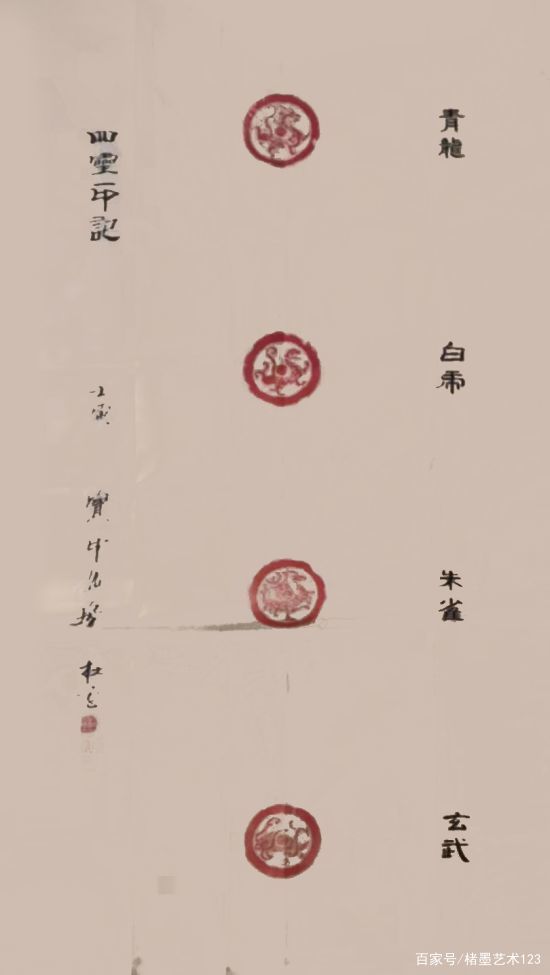 青龍
白虎
朱雀
玄武
四靈印記
壬寅
百家号/楮墨艺术123